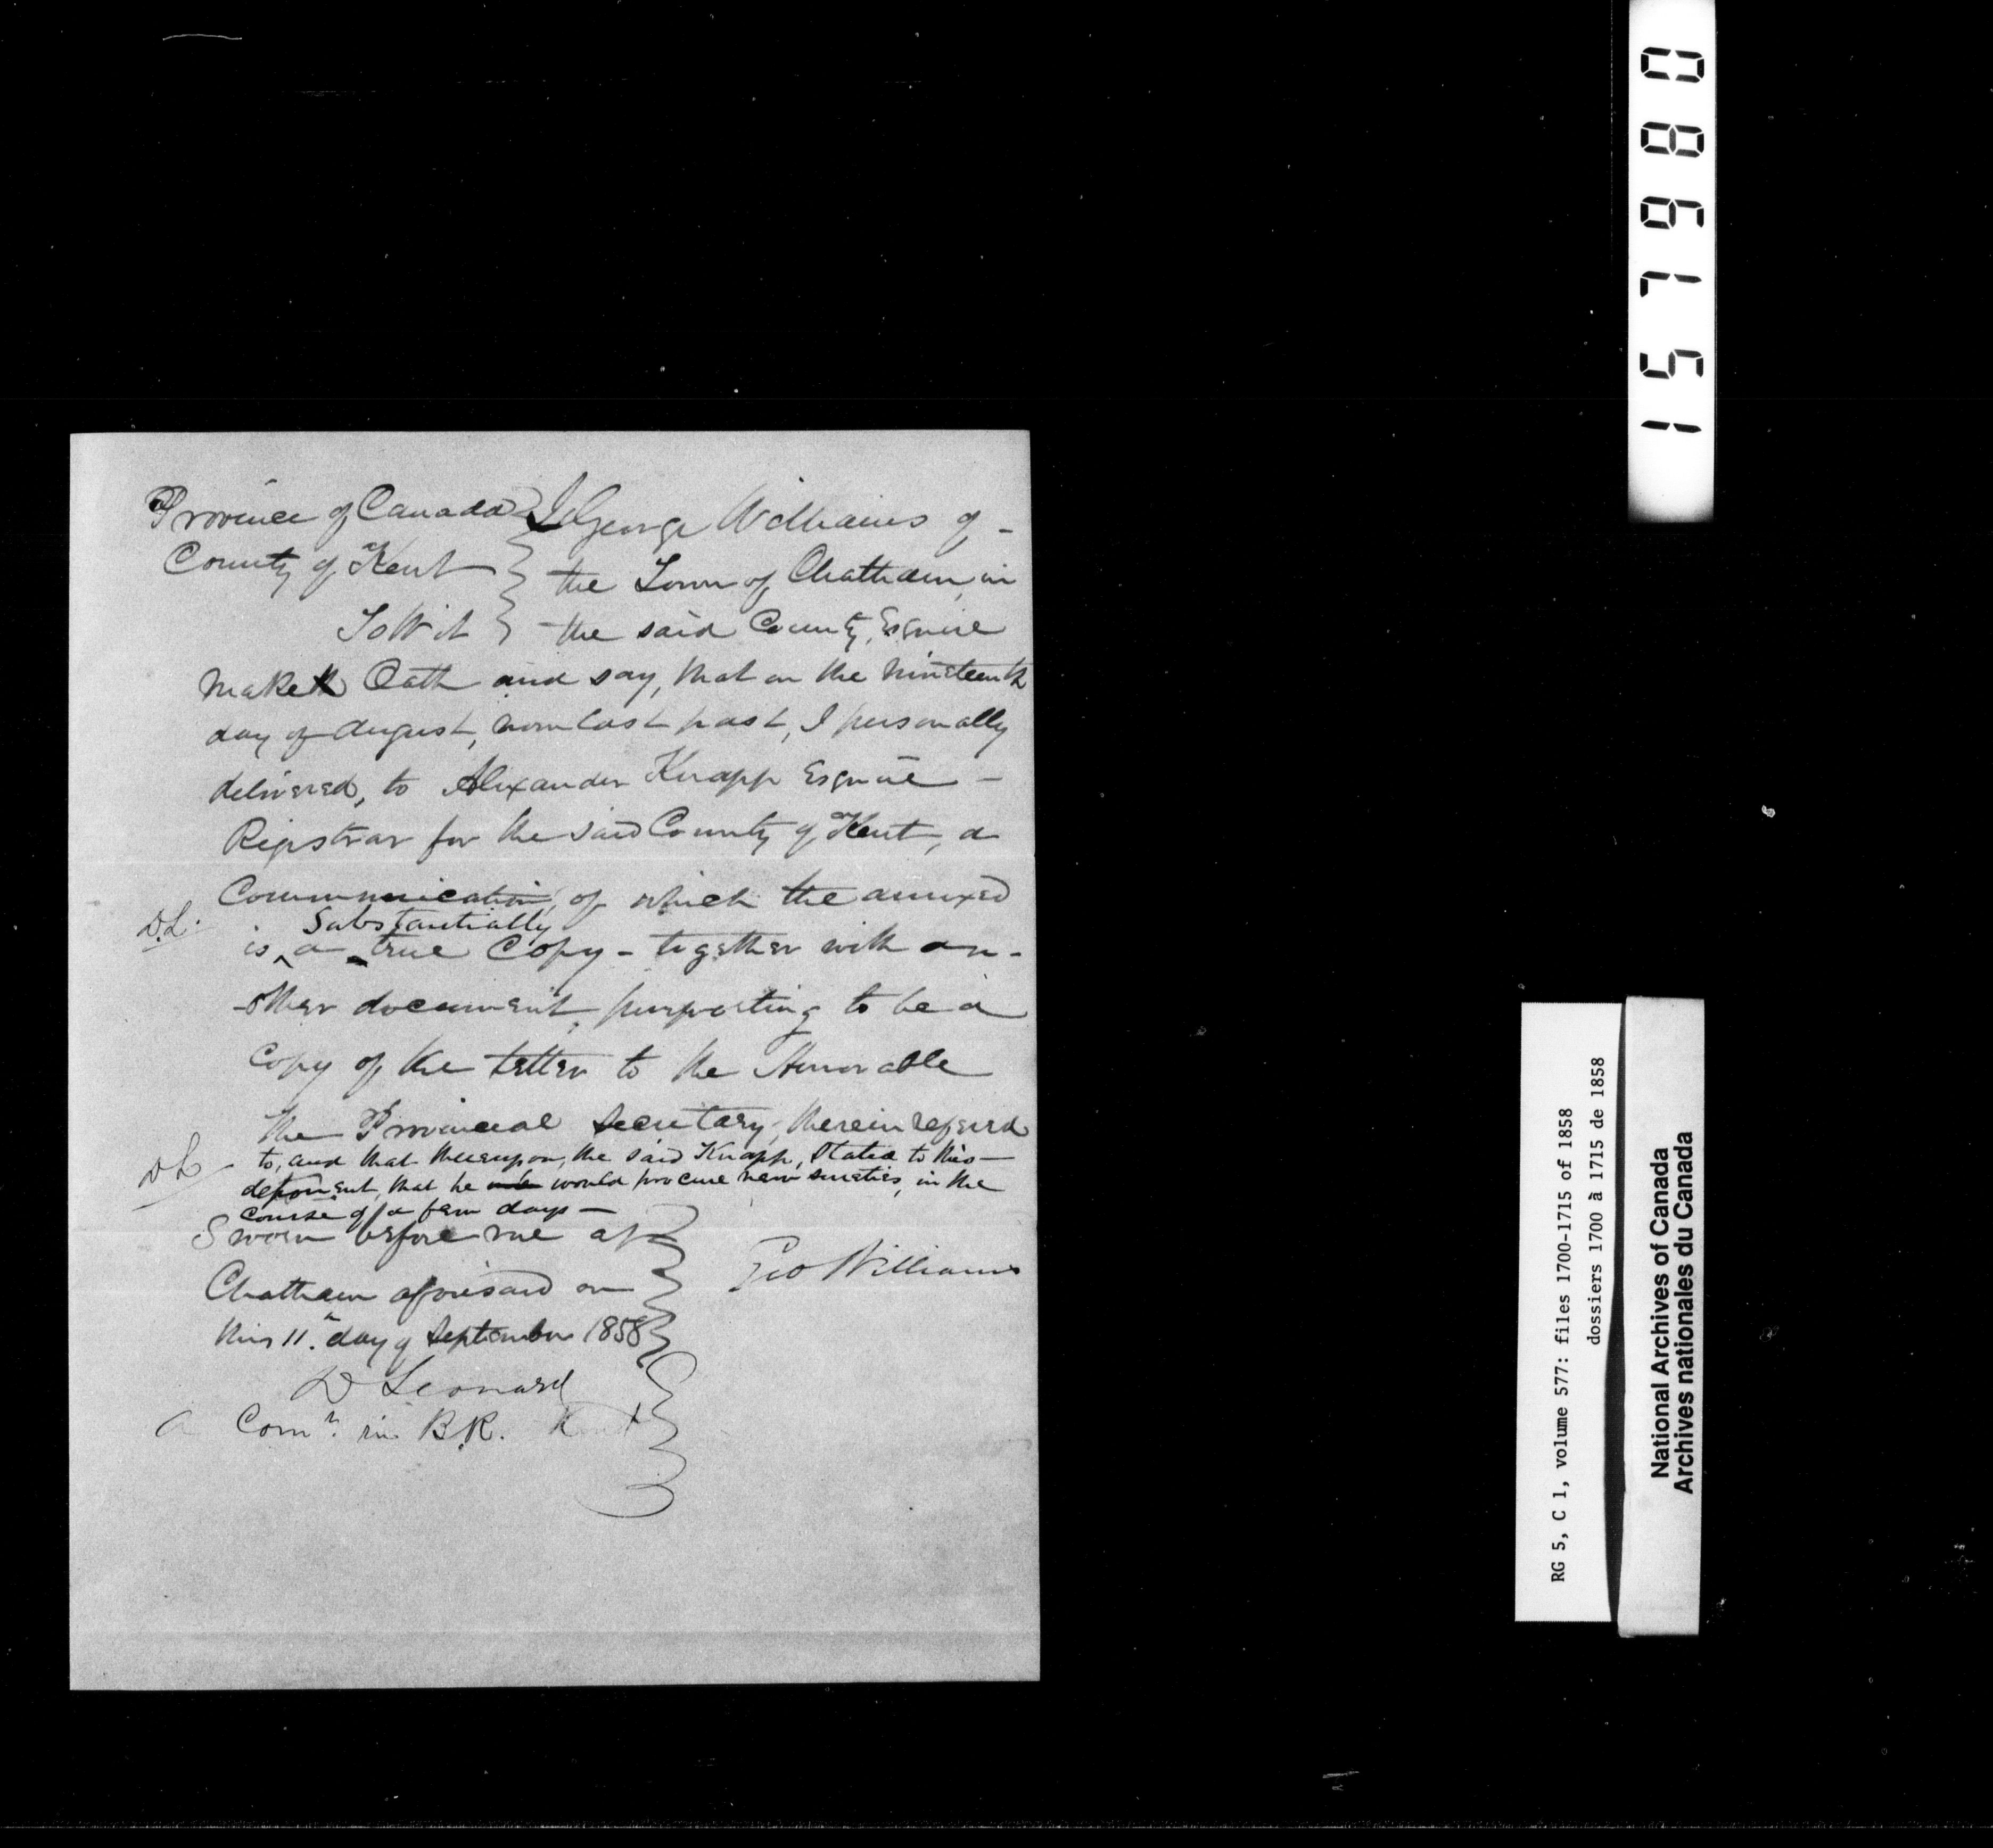 Province of Canada } I George Williams of -
County of Kent } the Town of Chatham, in
To Wit } the said County, Esquire
make Oath and say, that on the nineteenth
day of August, now last past, I personally
delivered, to Alexander Knapp Esquire -
Registrar for the said County of Kent, a
Communication, of which the annexed
D.L. Substantially
is ^ a true Copy - together with an-
-other document, purporting to be a
Copy of the letter to the Honorable
The Provincial Secretary, therein referred
D L to, and that thereupon, the said Knapp, Stated to this -
deponent, that he would procure new sureties, in the
course of a few days -
Sworn before me at }
Chatham aforesaid on }
this 11.th day of September 1858 }
Geo Williams
D Leonard
A Comr. in B.R. Kent
157980
RG 5, C 1, volume 577: files 1700-1715 of 1858
dossiers 1700 à 1715 de 1858
National Archives of Canada
Archives nationales du Canada